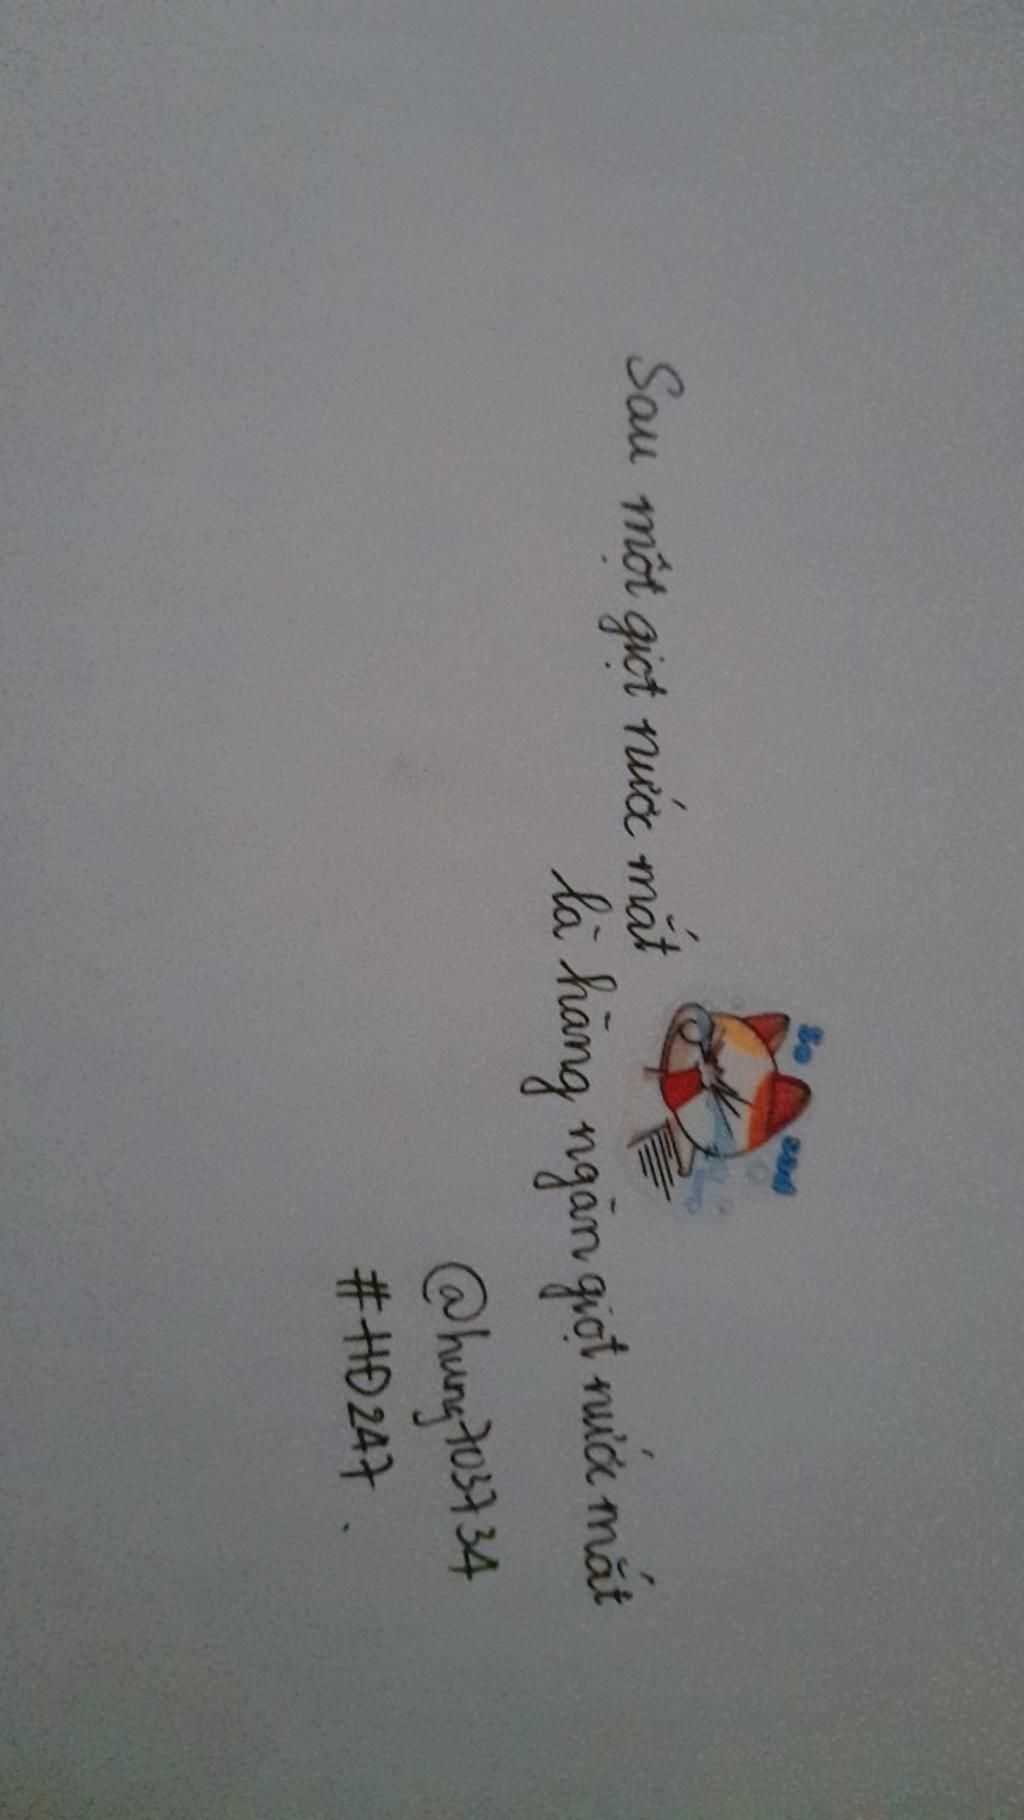 Sau một giọt nước mắt
là hàng ngàn giọt nước mắt
@hung703734
#HĐ247.